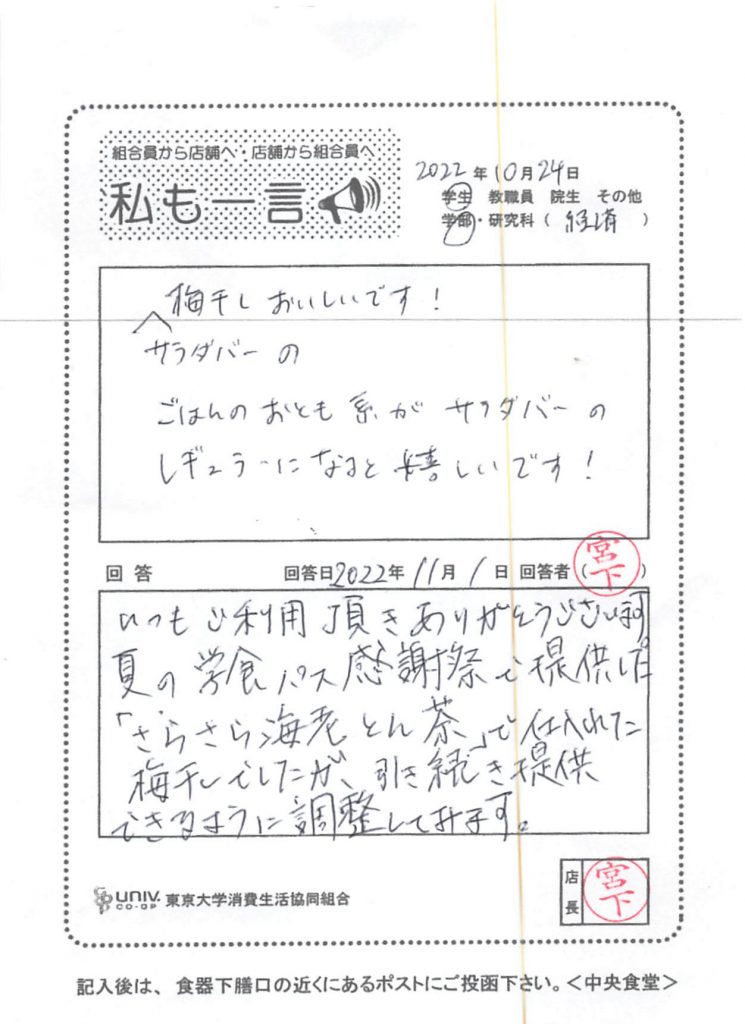 組合員から店舗へ・店舗から組合員へ
私も一言
2022年10月24日
学生 教職員 院生 その他
学部・研究科（ 経済 ）
梅干しおいしいです！
サラダバーの
ごはんのおとも系がサラダバーの
レギュラーになると嬉しいです！
回答 回答日2022年11月1日 回答者（宮下）
いつもご利用頂きありがとうございます。
夏の学食パス感謝祭で提供した
「さらさら海老とん茶」で仕入れた
梅干しでしたが、引き続き提供
できるように調整してみます。
UNIV. CO-OP 東京大学消費生活協同組合
店長 宮下
記入後は、食器下膳口の近くにあるポストにご投函下さい。＜中央食堂＞